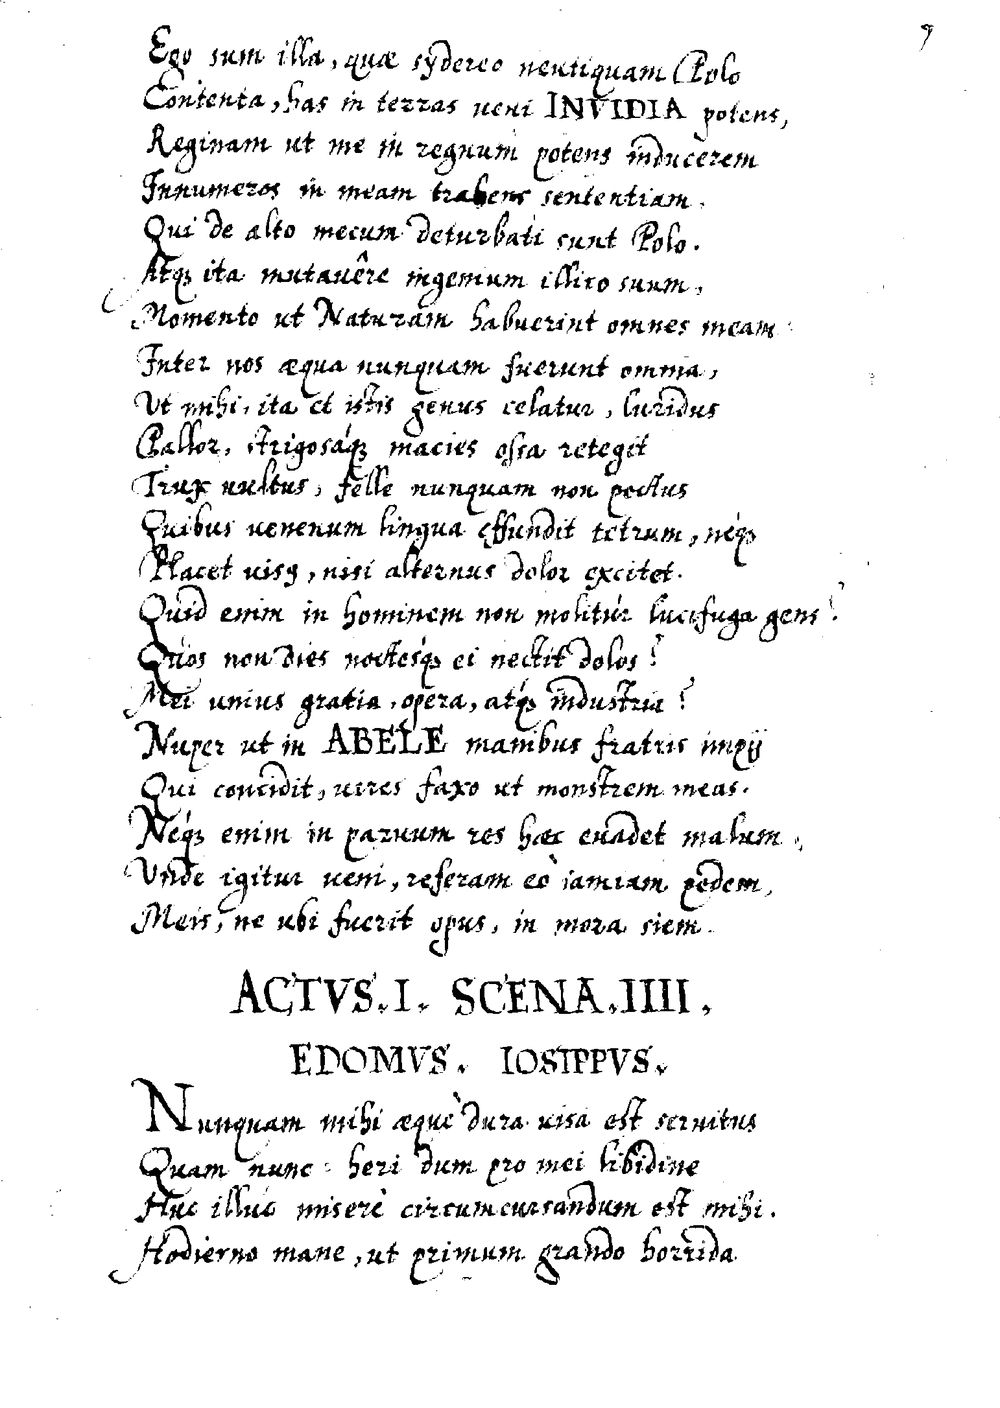 9
Ego sum illa, quæ sydereo neutiquam Polo
Contenta, has in terras ueni INVIDIA potens,
Reginam ut me in regnum potens inducerem
Innumeros in meam trahens sententiam.
Qui de alto mecum deturbati sunt Polo.
Atq; ita mutauêre ingenium illico suum,
Momento ut Naturam habuerint omnes meam:
Inter nos æqua nunquam fuerunt omnia,
Ut mihi, ita et istis genus celatur, luridus
Pallor, strigosáq; macies ossa retegit
Trux uultus, felle nunquam non pectus
Quibus uenenum lingua effundit tetrum, néq;
Placet uisq, nisi alternus dolor excitet.
Quid enim in hominem non molitur lucifuga gens?
Quos non dies noctésq; ei nectit dolos?
Mei unius gratia, opera, atq; industria?
Nuper ut in ABELE manibus fratris impij
Qui concidit, uires faxo ut monstrem meas.
Néq; enim in paruum res hæc euadet malum,
Unde igitur ueni, referam eò iamiam pedem,
Meis, ne ubi fuerit opus, in mora siem.
ACTVS. I. SCENA. IIII.
EDOMVS. IOSIPPVS.
Nunquam mihi æquè dura uisa est seruitus
Quam nunc: heri dum pro mei libidine
Huc illuc miserè circumcursandum est mihi.
Hodierno mane, ut primum grando horrida